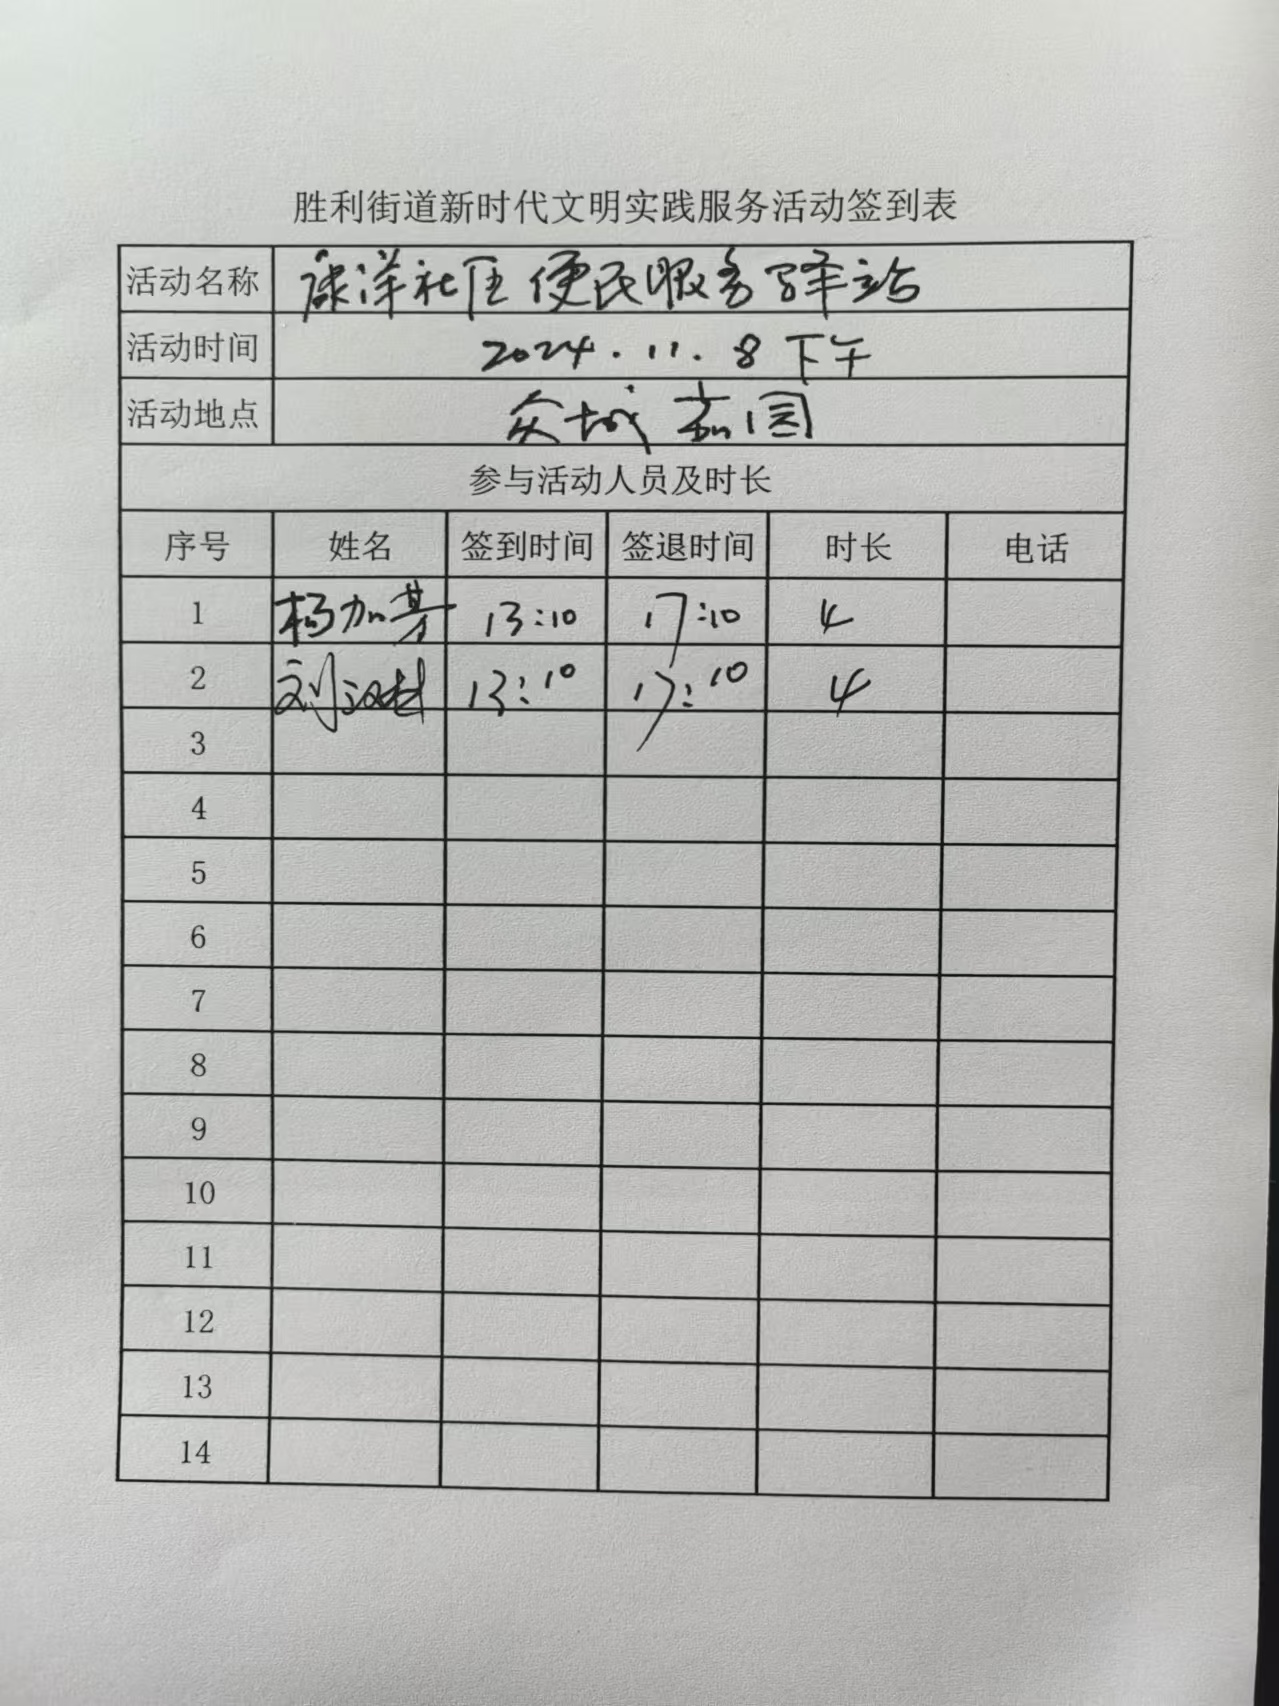 胜利街道新时代文明实践服务活动签到表
活动名称 康洋社区便民服务驿站
活动时间 2024.11.8 下午
活动地点 众城嘉园
参与活动人员及时长
序号 姓名 签到时间 签退时间 时长 电话
1 杨加 13:10 17:10 4
2 刘汉 13:10 17:10 4
3
4
5
6
7
8
9
10
11
12
13
14